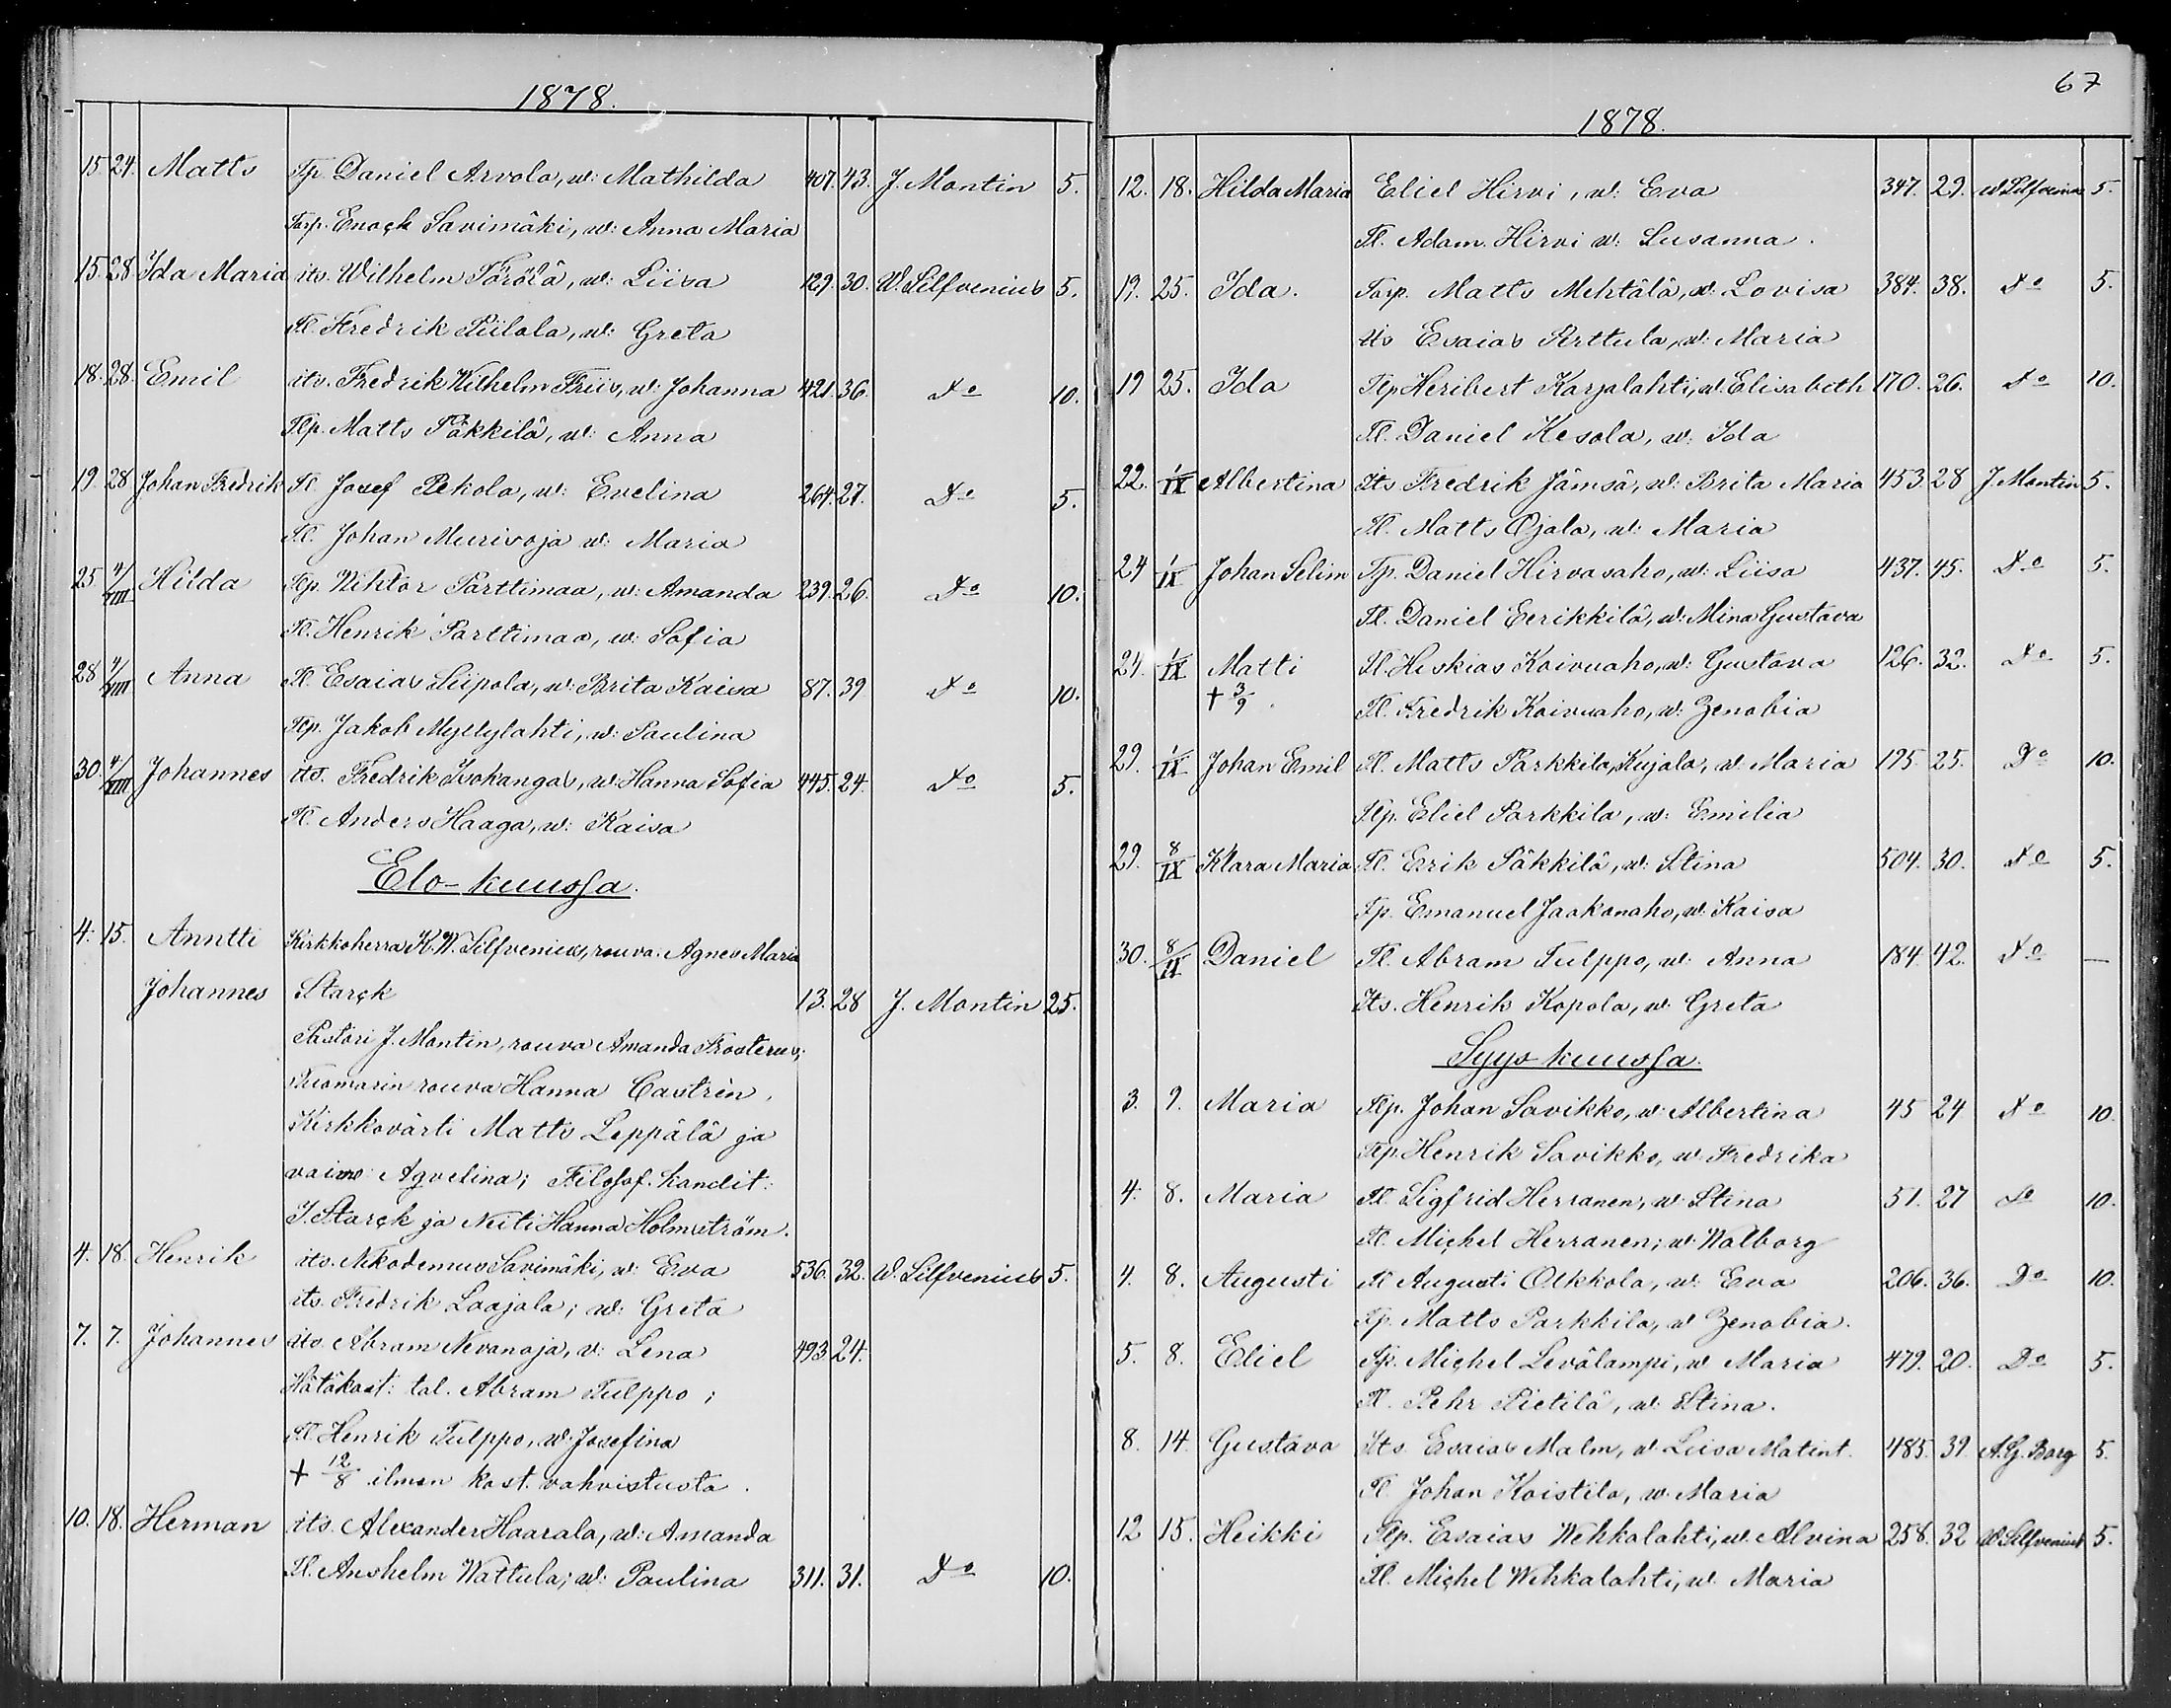 1878.
15. 24. Matts Tp. Daniel Arvola, w: Mathilda 407. 43. J. Montin 5.
Torp. Enock Savimäki, w: Anna Maria
15. 28 Ida Maria its. Wilhelm Törölä, w: Liisa 129. 30. W. Silfvenius 5.
Tl. Fredrik Piilola, w: Greta
18. 28. Emil its. Fredrik Wilhelm Friis, w: Johanna 421. 36. Do 10.
Tlp. Matts Päkkilä, w: Anna
19. 28 Johan Fredrik Tl. Josef Pekola, w: Evelina 264. 27. Do 5.
Tl. Johan Meurisoja w: Maria
25 4/VIII Hilda Tlp. Wehtor Parttimaa, w: Amanda 239. 26. Do 10.
Tl. Henrik Parttimaa, w: Sofia
28 4/VIII Anna Tl. Esaias Siipola, w: Brita Kaisa 87. 39 Do 10.
Tlp. Jakob Myllylahti, w: Paulina
30. 4/VIII Johannes its. Fredrik Isokangas, w: Hanna Sofia 445. 24. Do 5.
Tl. Anders Haaga, w: Kaisa
Elo-kuussa.
4. 15. Anntti Kirkkoherra K. W. Silfvenius, rouva: Agnes Maria
Johannes Starck 13. 28 J. Montin 25.
Pastori J. Montin, rouva Amanda Frosterus,
Tuomarin rouva Hanna Castrèn,
Kirkkovärti Matts Leppälä ja
vaimo: Agvelina; Filosof. kandit:
J. Starck ja Neiti Hanna Holmström.
4. 18. Henrik its. Nikodemus Savimäki, w: Eva 536. 32. W. Silfvenius 5.
its. Fredrik Laajala; w: Greta
7. 7. Johannes its. Abram Nevanoja, v: Lena 493. 24.
Hätäkast: tal. Abram Tulppo;
Tl. Henrik Tulppo, w. Josefina
+ 12/8 ilman kast. vahvistusta.
10. 18. Herman its. Alexander Haarala, w: Amanda
Tl. Anshelm Wattula; w: Paulina 311. 31. Do 10.
67
1878.
12. 18. Hilda Maria Eliel Hirvi, w: Eva 347. 29. W Silfvenius 5.
Tl. Adam Hirvi w: Susanna.
19. 25. Ida. Torp. Matts Mehtälä, w: Lovisa 384. 38. Do 5.
its Esaias Perttula, w: Maria
19 25. Ida Tlp Heribert Karjalahti, w: Elisabeth 170. 26. Do 10.
Tl. Daniel Kesola, w: Ida
22. 1/IX Albertina Its Fredrik Jämsä, w: Brita Maria 453. 28 J. Montin 5.
Tl. Matts Ojala, w: Maria
24 1/IX Johan Selim Tp. Daniel Hirvasaho, w: Liisa 437. 45. Do 5.
Tl. Daniel Eerikkilä, w: Mina Gustava
24. 1/IX Matti Tl. Heskias Koivuaho, w: Gustava 126. 32. Do 5.
+ 3/9. Tl. Fredrik Koivuaho, w: Zenobia
29. 1/IX Johan Emil Tl. Matts Parkkila, Kujala, w. Maria 195. 25. Do 10.
Tlp. Eliel Parkkila, w: Emilia
29. 8/IX Klara Maria Tl. Erik Päkkilä, w: Stina 504. 30. Do 5.
Tp. Emanuel Jaakonaho, w: Kaisa
30. 8/IX Daniel Tl. Abram Tulppo, w: Anna 184. 42. Do —
Its. Henrik Kopola, w: Greta
Syys-kuussa.
3. 9. Maria Tlp. Johan Savikko, w: Albertina 45 24 Do 10.
Tlp. Henrik Savikko, w. Fredrika
4. 8. Maria Tl. Sigfrid Herranen, w: Stina 51. 27 Do 10.
Tl. Michel Herranen; w: Walborg
4. 8. Augusti Tl Augusti Olkkola, w: Eva 206. 36. Do 10.
Tp. Matts Parkkila, w Zenobia.
5. 8. Eliel Tp. Michel Levälampi, w Maria 479. 20. Do 5.
Tl. Pehr Pietilä, w: Stina.
8. 14. Gustava Its. Esaias Malm, w Leisa Matint. 485. 39. A. G. Borg 5.
Tl. Johan Koistila, w. Maria
12 15. Heikki Tlp. Esaias Wehkalahti, w. Alvina 258. 32 W Silfvenius 5.
Tl. Michel Wehkalahti, w. Maria